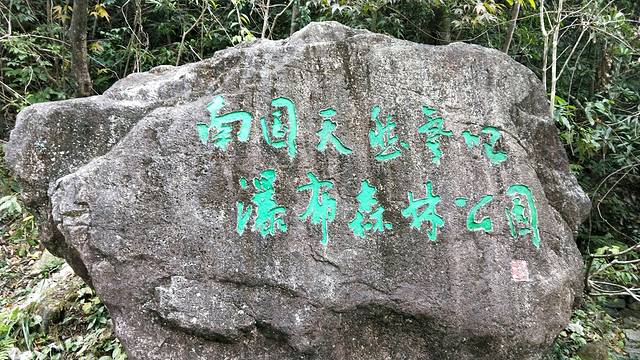 南国天然氧吧
瀑布森林公园